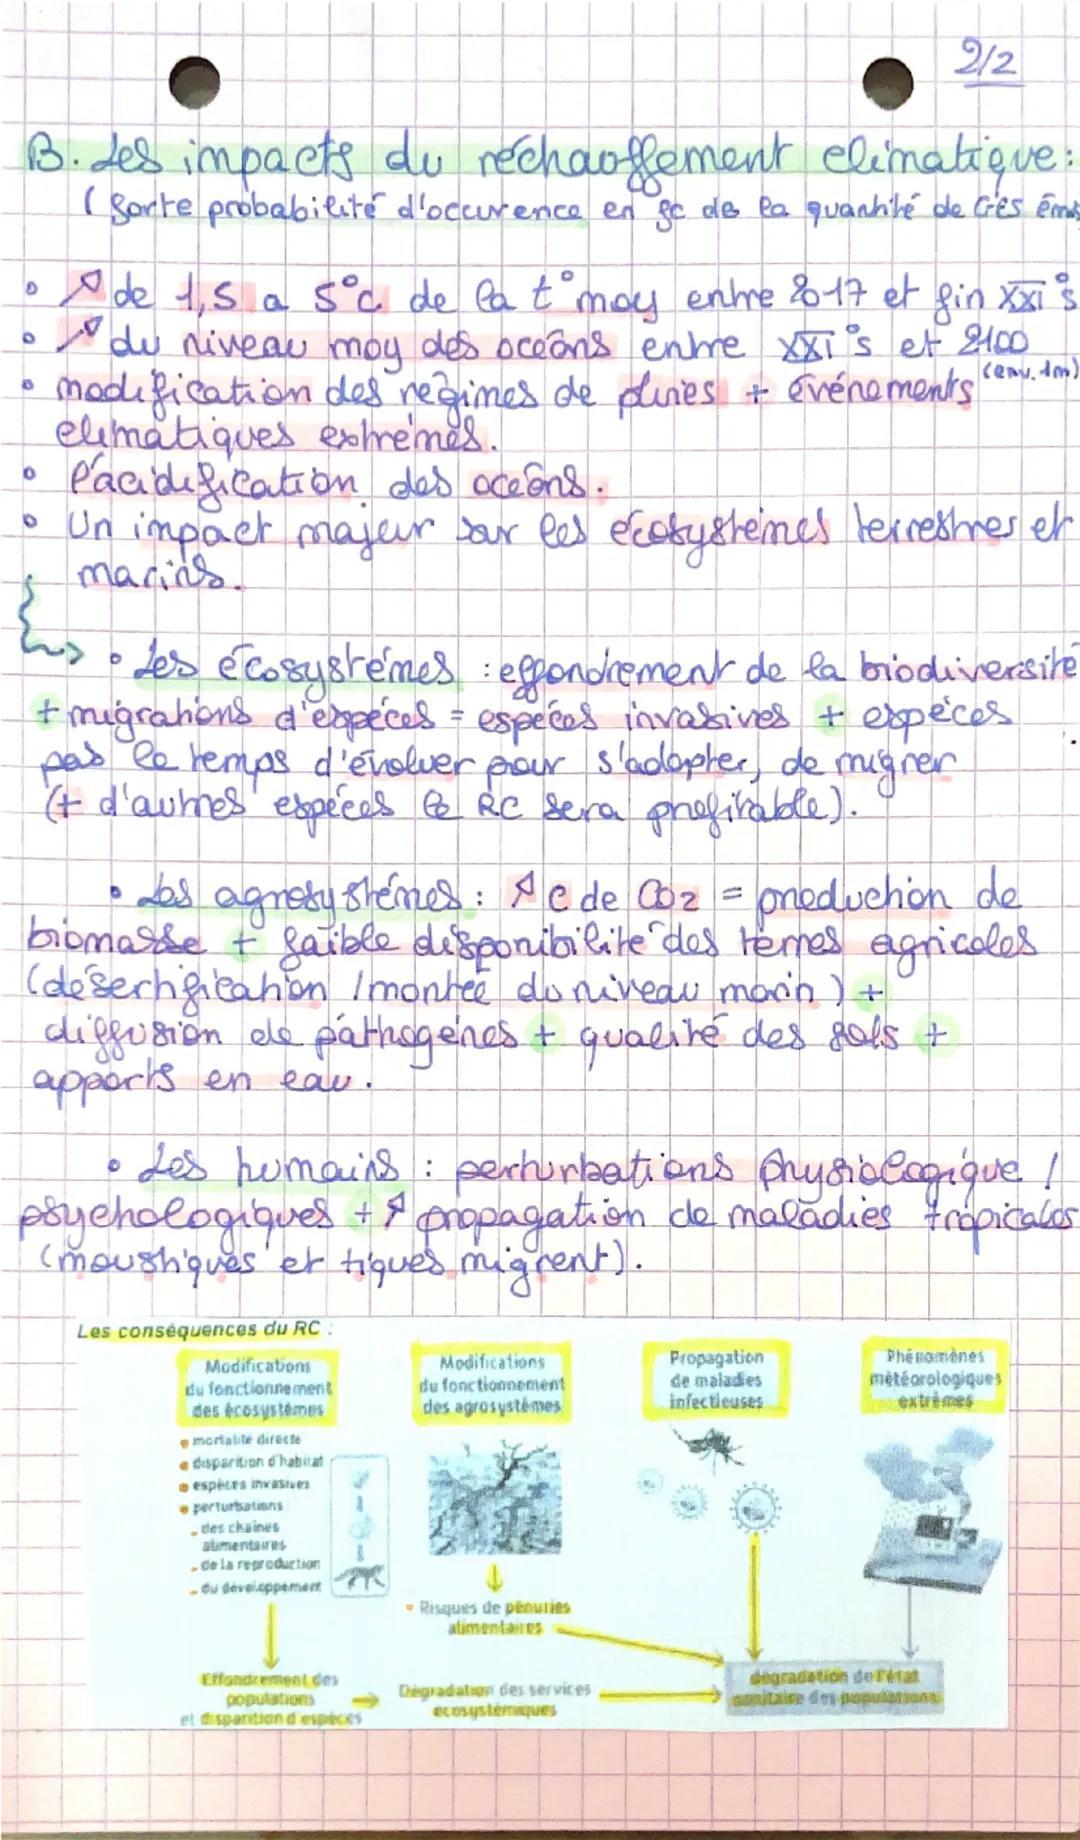 2/2
B. Les impacts du réchauffement climatique :
(forte probabilité d'occurence en fc de la quantité de GES émis
• ↗ de 1,5 a 5°c de la t° moy entre 2017 et fin XXI°s
• ↗ du niveau moy des océans entre XXI°s et 2100
(env. 1m)
• modification des régimes de pluies + événements
climatiques extrêmes.
• l'acidification des océans.
• Un impact majeur sur les écosystèmes terrestres et
marins.
→ • Les écosystémes : effondrement de la biodiversité
+ migrations d'espéces = espéces invasives + espéces
pas le temps d'évoluer pour s'adapter, de migrer
(+ d'autres espéces le RC sera profitable).
• Les agrosystémes : ↗ c de CO2 = production de
biomasse + faible disponibilité des terres agricoles
(désertification / montée du niveau marin) +
diffusion de pathogénes + qualité des sols +
apports en eau.
• Les humains : perturbations physiologique /
psychologiques + ↗ propagation de maladies tropicales
(moustiques et tiques migrent).
Les conséquences du RC :
Modifications
du fonctionnement
des écosystèmes
• mortalité directe
• disparition d'habitat
• espèces invasives
• perturbations
- des chaînes
alimentaires
- de la reproduction
- du développement
Effondrement des
populations
et disparition d'espèces
Modifications
du fonctionnement
des agrosystèmes
• Risques de pénuries
alimentaires
Dégradation des services
écosystémiques
Propagation
de maladies
infectieuses
Phénomènes
météorologiques
extrêmes
dégradation de l'état
sanitaire des populations